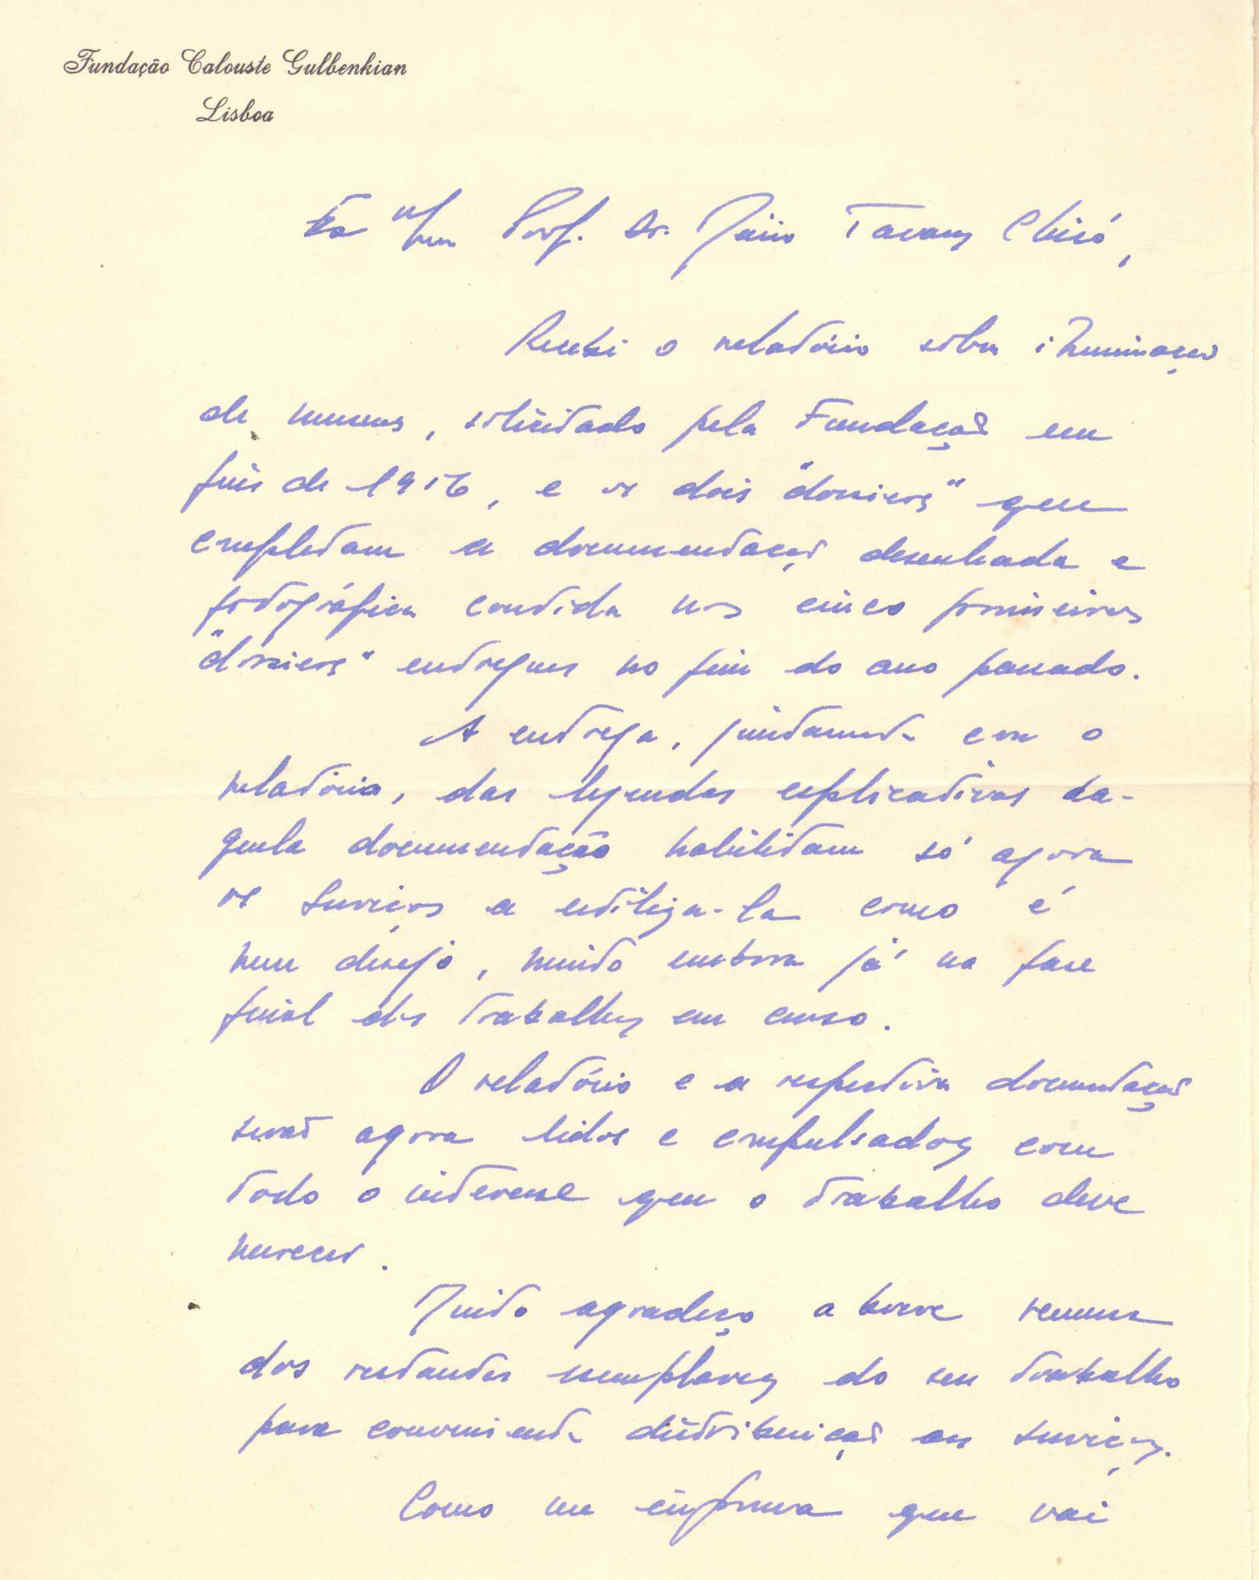 Fundação Calouste Gulbenkian
Lisboa
Prof. Dr. Mário Tavares Chicó,
Recebi o relatório sôbre iluminação
de museus, solicitado pela Fundação em
fins de 1956, e os dois "dossiers" que
completam a documentação desenhada e
fotográfica contida nos cinco primeiros
"dossiers" entregues no fim do ano passado.
A entrega, juntamente com o
relatório, das legendas explicativas da-
quela documentação habilitam só agora
os Serviços a utiliza-la como é
meu desejo, muito embora já na fase
final dos trabalhos em curso.
O relatório e a respectiva documentação
serão agora lidos e compulsados com
todo o interesse que o trabalho deve
merecer.
Muito agradeço a breve remessa
dos restantes exemplares do seu trabalho
para conveniente distribuição aos Serviços.
Como me informa que vai